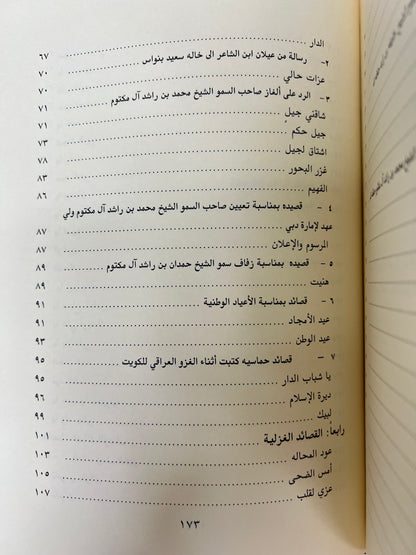 الدار
٢- رسالة من عيلان ابن الشاعر الى خاله سعيد بنواس ........ ٦٧
عزات حالي ........ ٧٠
٣- الرد على ألغاز صاحب السمو الشيخ محمد بن راشد آل مكتوم ........ ٧٠
شاقتني جيل ........ ٧١
جيل حكم ........ ٧١
اشتاق لجيل ........ ٧٣
غزر البحور ........ ٧٨
الفهيم ........ ٨٣
٨٦
٤- قصيده بمناسبة تعيين صاحب السمو الشيخ محمد بن راشد آل مكتوم ولي
عهد لإمارة دبي ........ ٨٧
المرسوم والإعلان ........ ٨٧
٥- قصيده بمناسبة زفاف سمو الشيخ حمدان بن راشد آل مكتوم ........ ٨٩
هنيت ........ ٨٩
٦- قصائد بمناسبة الأعياد الوطنية ........ ٩١
عيد الأمجاد ........ ٩١
عيد الوطن ........ ٩٣
٧- قصائد حماسيه كتبت أثناء الغزو العراقي للكويت ........ ٩٥
يا شباب الدار ........ ٩٥
ديرة الإسلام ........ ٩٦
لبيك ........ ٩٩
رابعاً: القصائد الغزلية ........ ١٠١
عود المحاله ........ ١٠٣
أمس الضحى ........ ١٠٥
عزي لقلب ........ ١٠٧
١٧٣